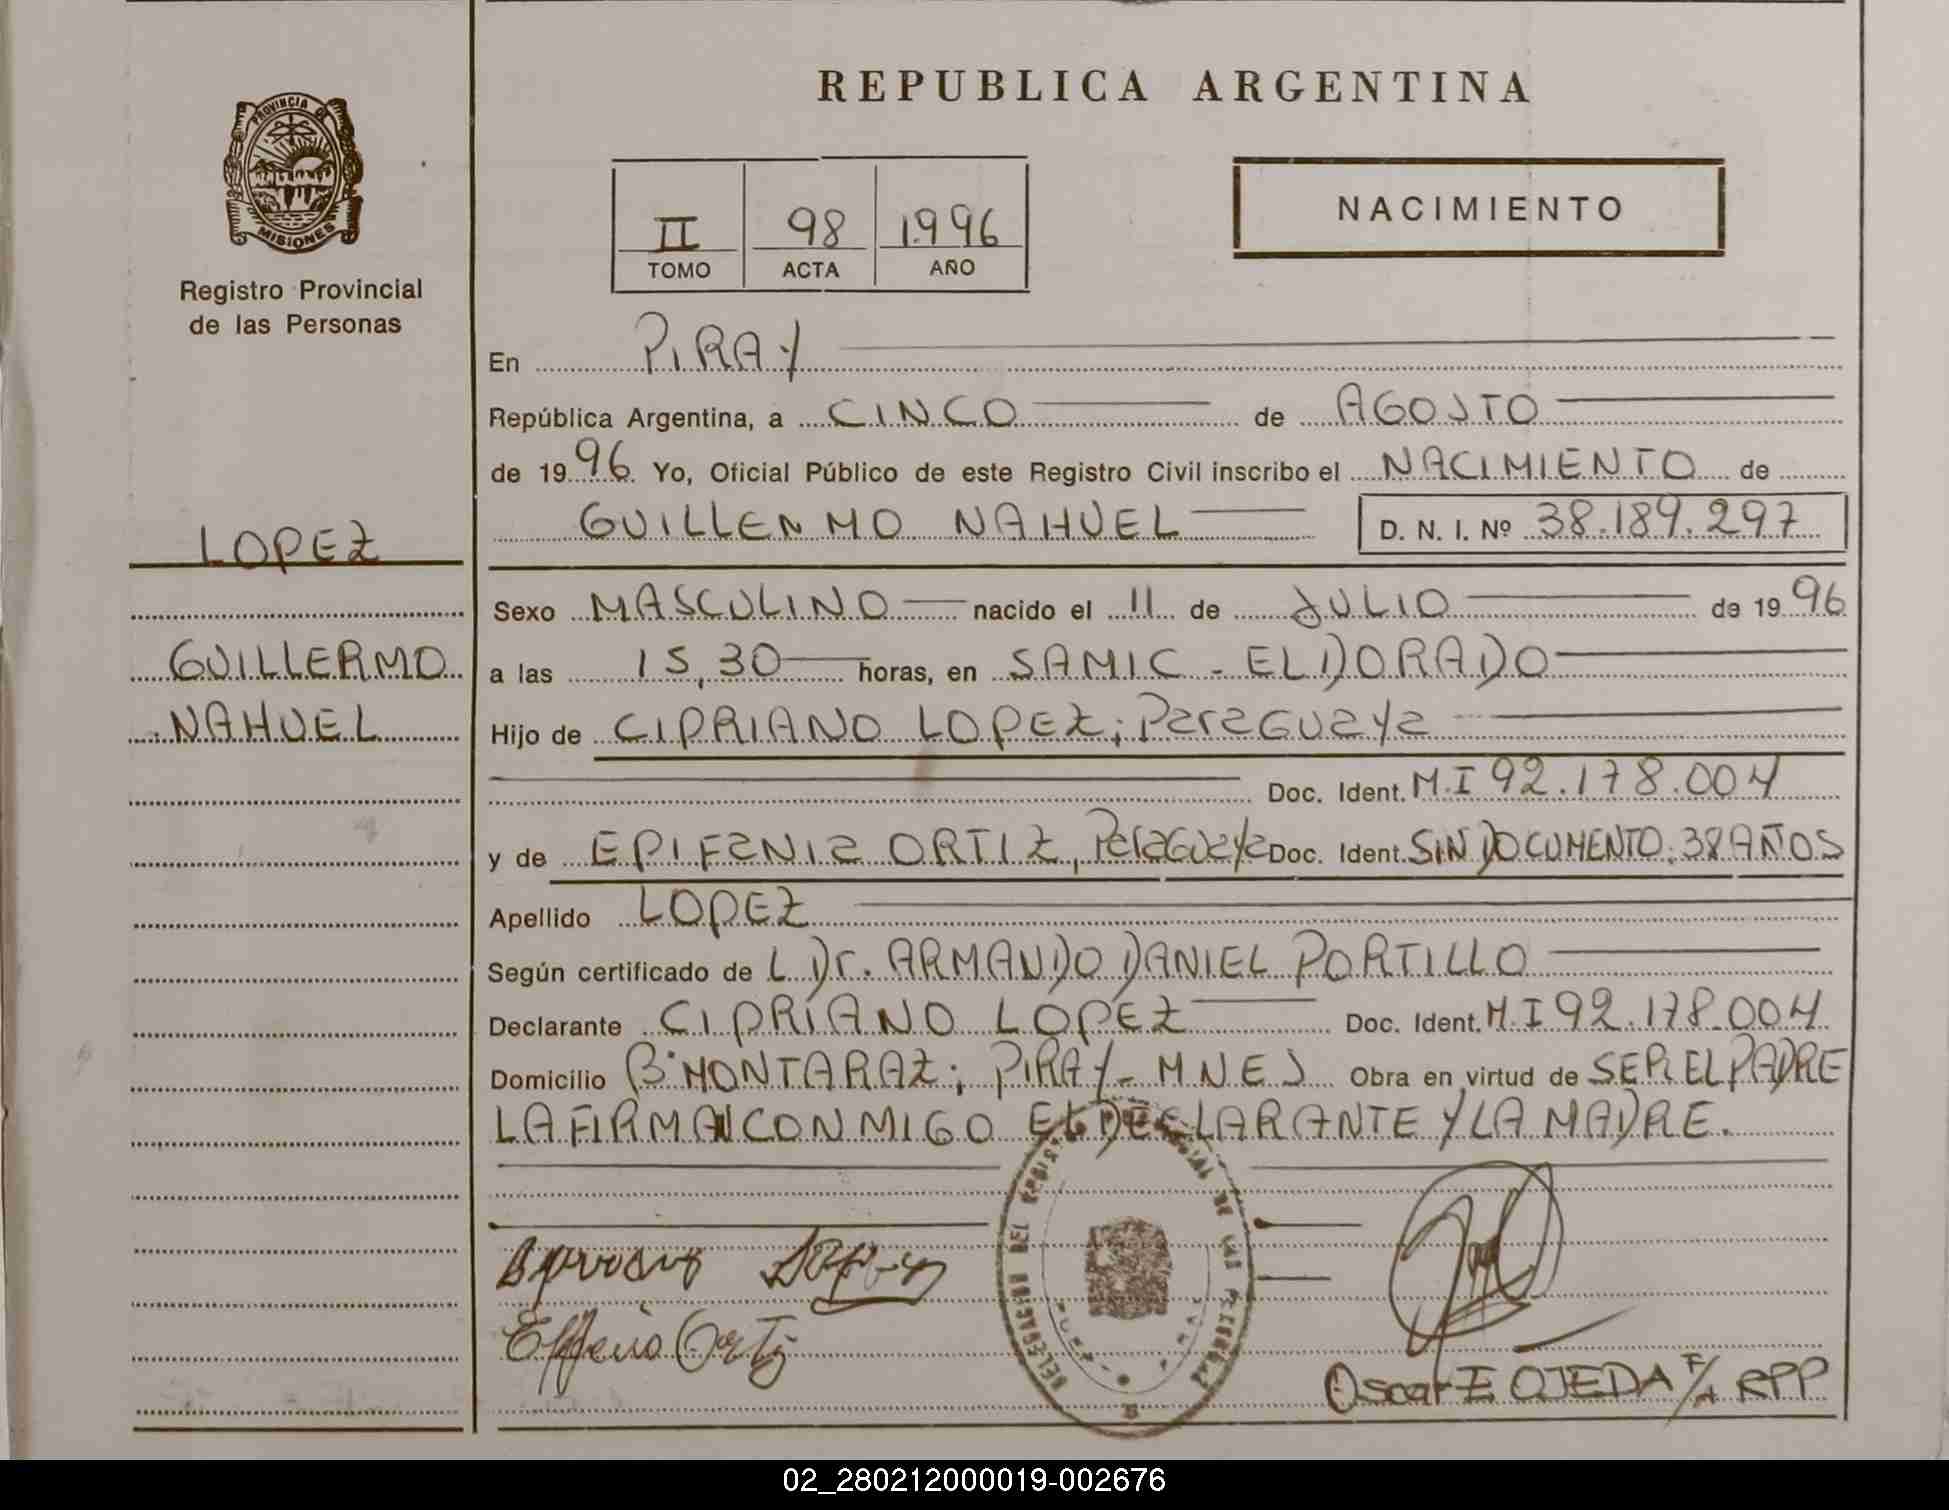 REPUBLICA ARGENTINA
PROVINCIA DE
MISIONES
Registro Provincial
de las Personas
II 98 1996
TOMO ACTA AÑO
NACIMIENTO
En PIRAY
República Argentina, a CINCO de AGOSTO
de 1996. Yo, Oficial Público de este Registro Civil inscribo el NACIMIENTO de
GUILLENMO NAHUEL D. N. I. Nº 38.189.297
LOPEZ
GUILLERMO
NAHUEL
Sexo MASCULINO nacido el 11 de JULIO de 1996
a las 15,30 horas, en SAMIC - ELDORADO
Hijo de CIPRIANO LOPEZ; ParaGUaya
Doc. Ident. M.I 92.178.004
y de EPIFaNIa ORTIZ, ParaGUaya Doc. Ident. SIN DOCUMENTO. 38 AÑOS
Apellido LOPEZ
Según certificado de L Dr. ARMANDO DANIEL PORTILLO
Declarante CIPRIANO LOPEZ Doc. Ident. M.I 92.178.004
Domicilio Bº MONTARAZ; PIRAY - MNES Obra en virtud de SER EL PADRE
LA FIRMAN CONMIGO EL DECLARANTE Y LA MADRE.
DELEGACION DEL DE LAS PERSONAS
Ortiz
Oscar E OJEDA F/A RPP
02_280212000019-002676